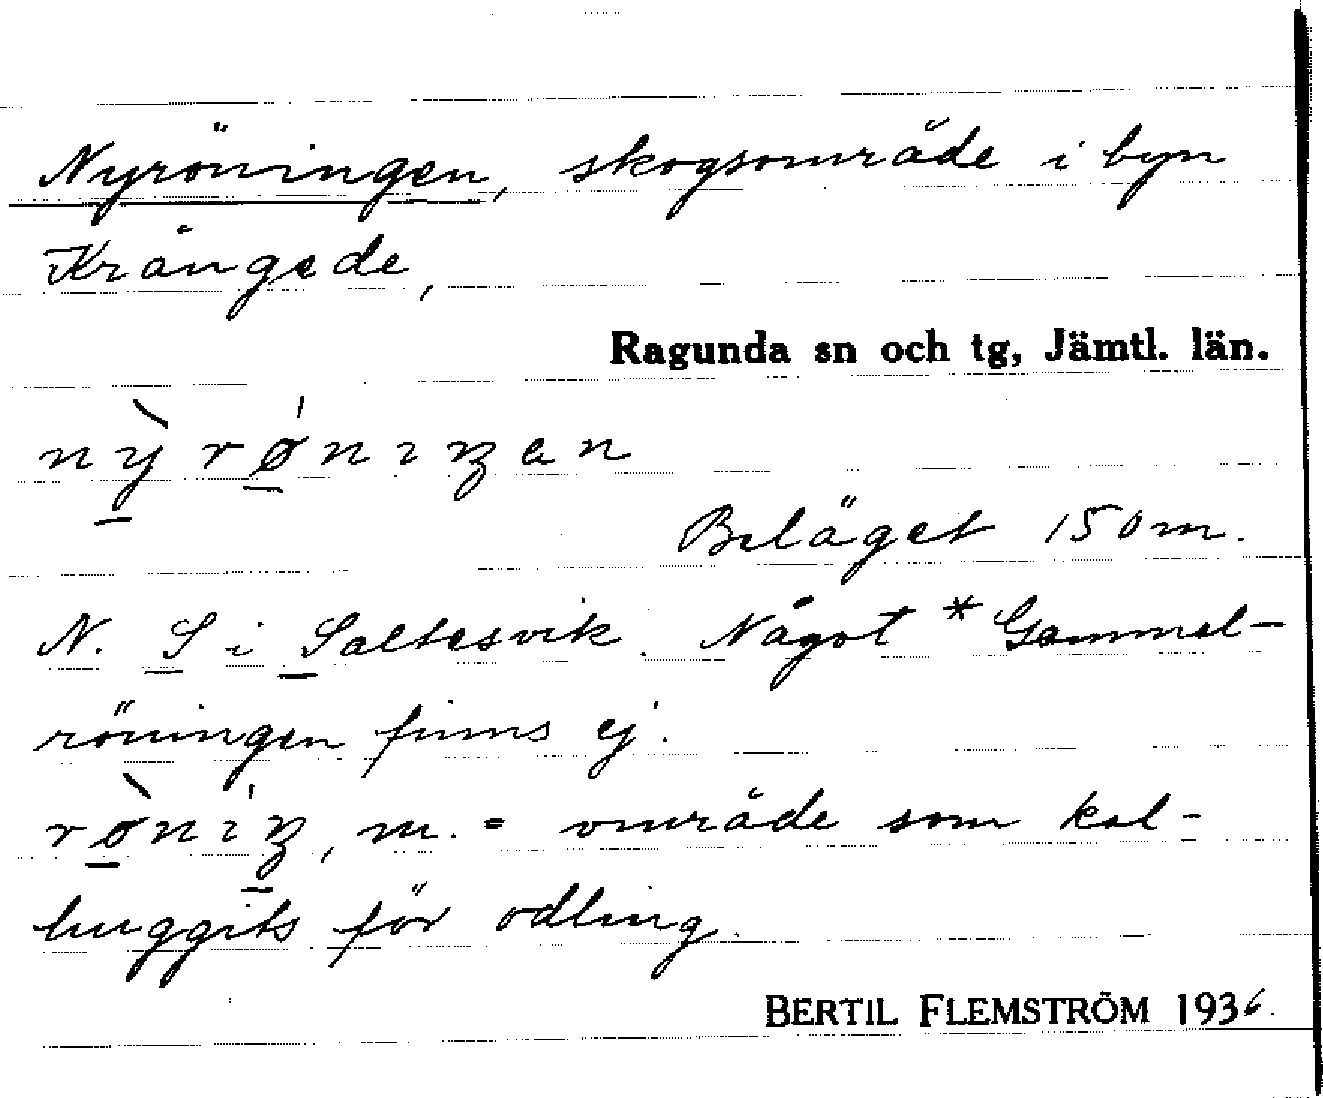 Nyröningen, skogsområde i byn
Krångede,
Ragunda sn och tg, Jämtl. län.
nỳrø̀niŋen
Beläget 150 m.
N. S i Saltesvik. Något *Gammel-
röningen finns ej.
rø̀niŋ, m. = område som kal-
huggits för odling.
BERTIL FLEMSTRÖM 1936.